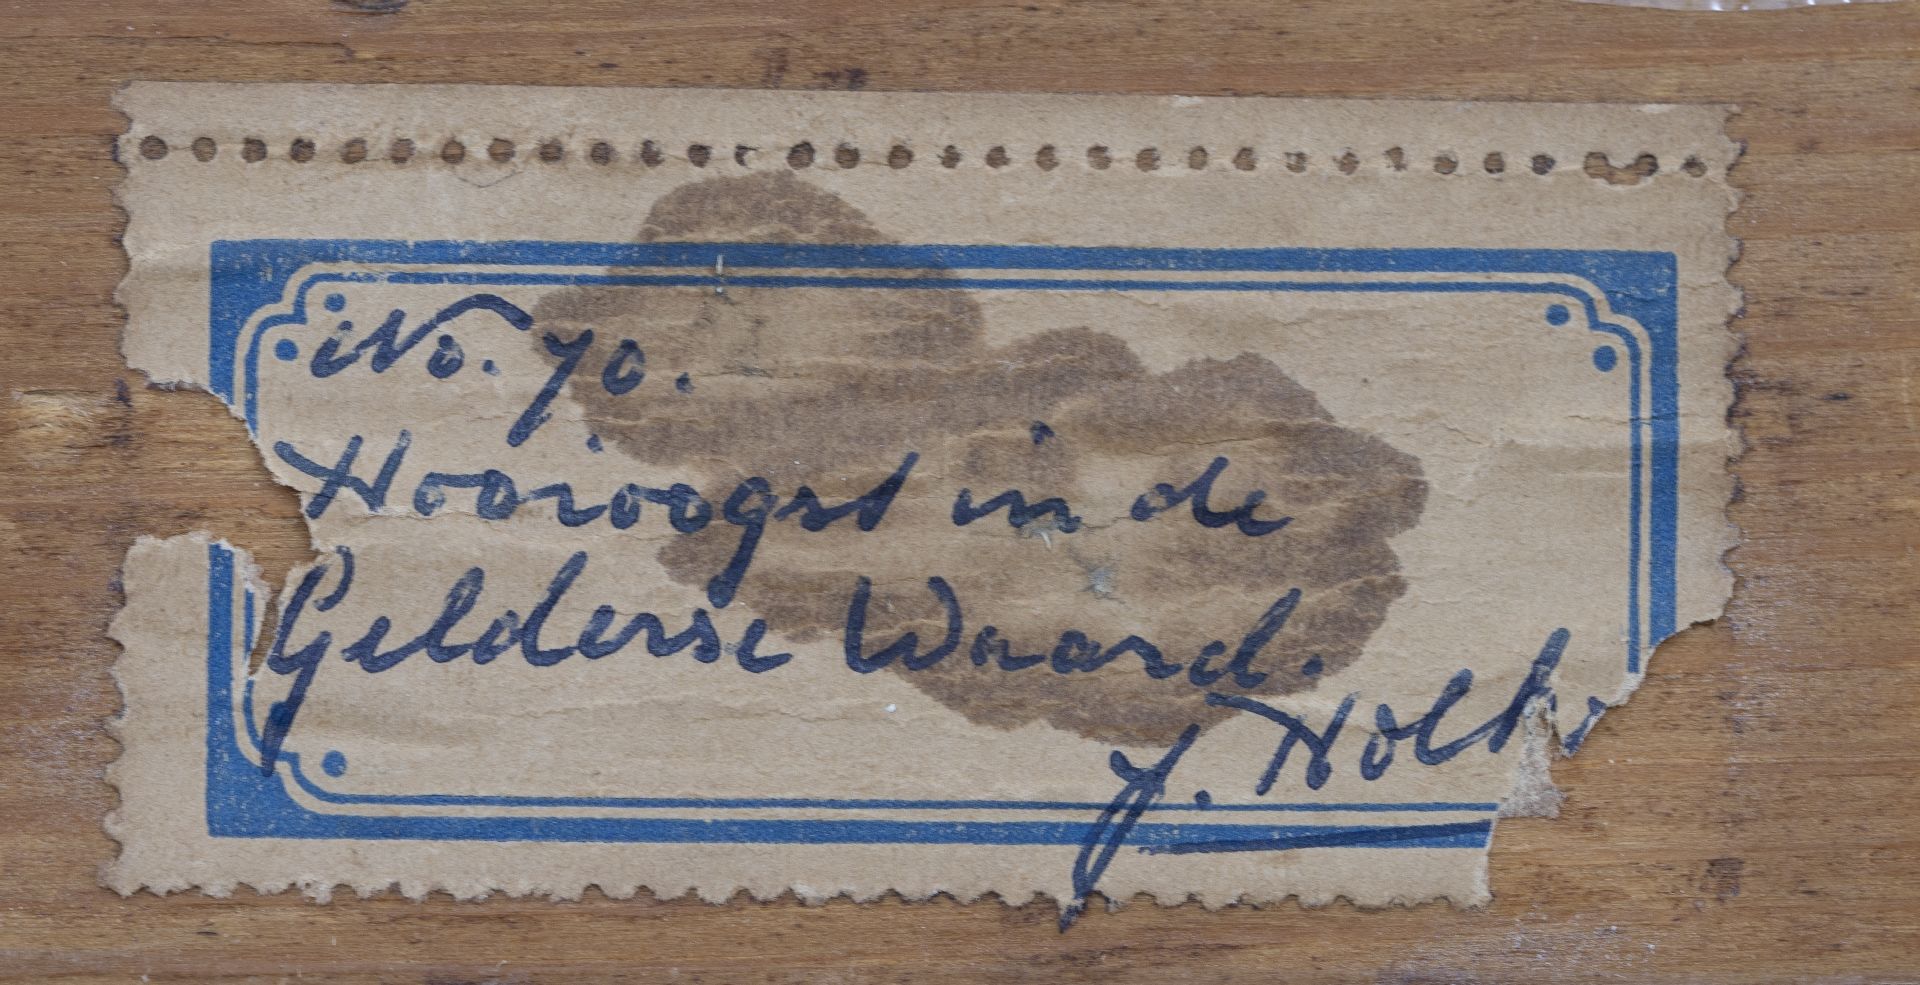 No. 70.
Hooioogst in de
Gelderse Waard.
J. Holt